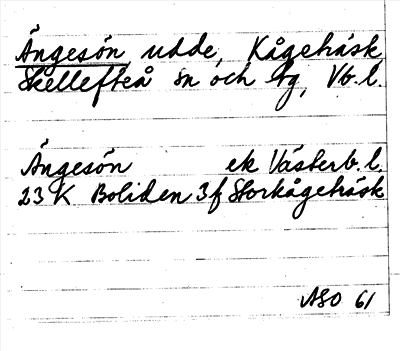 Ängesön, udde, Kågehäsk,
Skellefteå sn och tg, Vb. l.
Ängesön ek Västerb. l.
23 K Boliden 3 f Storkågehäsk
ASO 61